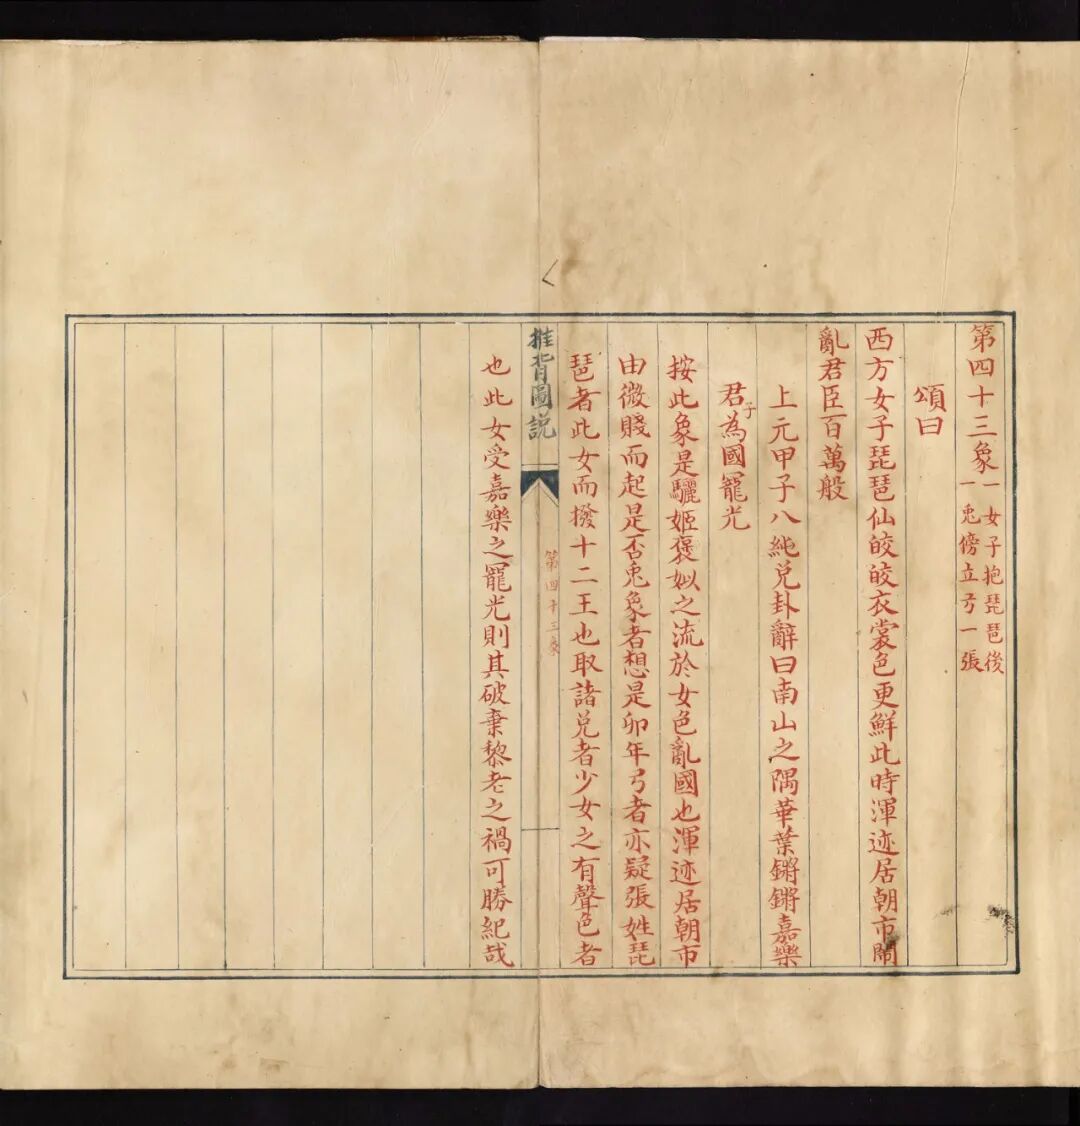 第四十三象
一女子抱琵琶後
一兎傍立弓一張
頌曰
西方女子琵琶仙皎皎衣裳色更鮮此時渾迹居朝市鬧
亂君臣百萬般
上元甲子八純兌卦辭曰南山之隅華葉鏘鏘嘉樂
君子為國寵光
按此象是驪姬褒姒之流於女色亂國也渾迹居朝市
由微賤而起是否兎象者想是卯年弓者亦疑張姓琵
琶者此女而撥十二王也取諸兌者少女之有聲色者
推背圖說
第四十三象
也此女受嘉樂之寵光則其破棄黎老之禍可勝紀哉